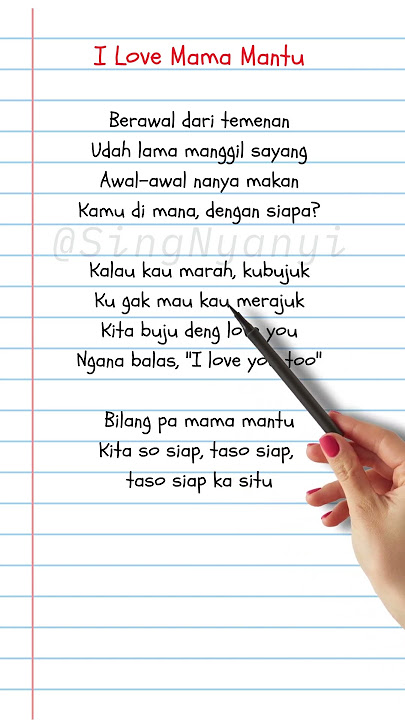 I Love Mama Mantu
Berawal dari temenan
Udah lama manggil sayang
Awal-awal nanya makan
Kamu di mana, dengan siapa?
@SingNyanyi
Kalau kau marah, kubujuk
Ku gak mau kau merajuk
Kita buju deng love you
Ngana balas, "I love you too"
Bilang pa mama mantu
Kita so siap, taso siap,
taso siap ka situ